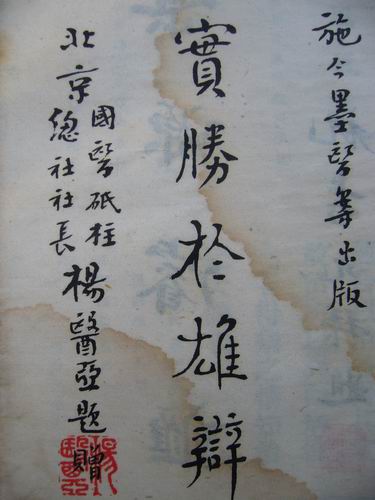 施今墨醫案出版
實勝於雄辯
北京國醫砥柱
總社社長
楊醫亞題贈